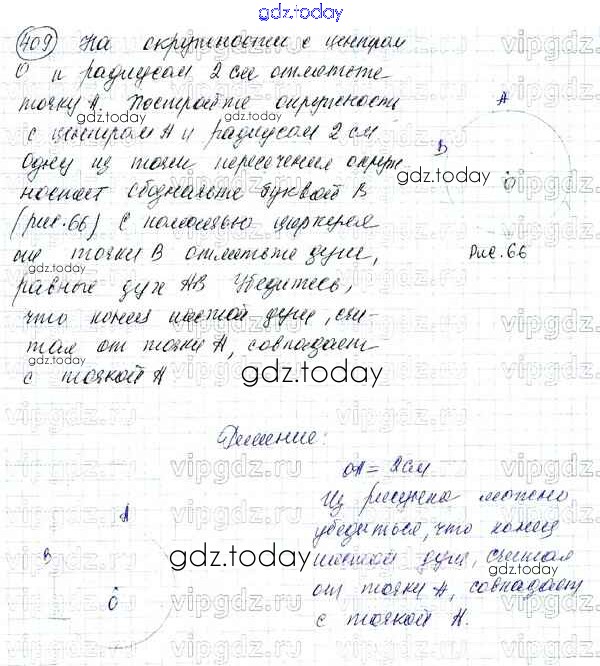 gdz.today
409) На окружности с центром
О и радиусом 2 см отметьте
точку А. Постройте окружность
с центром А и радиусом 2 см
Одну из точек пересечения окруж
ностей обозначьте буквой В
(рис.66) С помощью циркуля
от точки В отметьте дуги,
равные дуге АВ Убедитесь,
что конец шестой дуги, счи-
тая от точки А, совпадает
с точкой А
A
B
O
Рис.66
gdz.today
gdz.today
gdz.today
gdz.today
gdz.today
Решение:
ОА = 2см
Из рисунка можно
убедиться, что конец
шестой дуги, считая
от точки А, совпадает
с точкой А.
A
B
O
gdz.today
gdz.today
vipgdz.ru